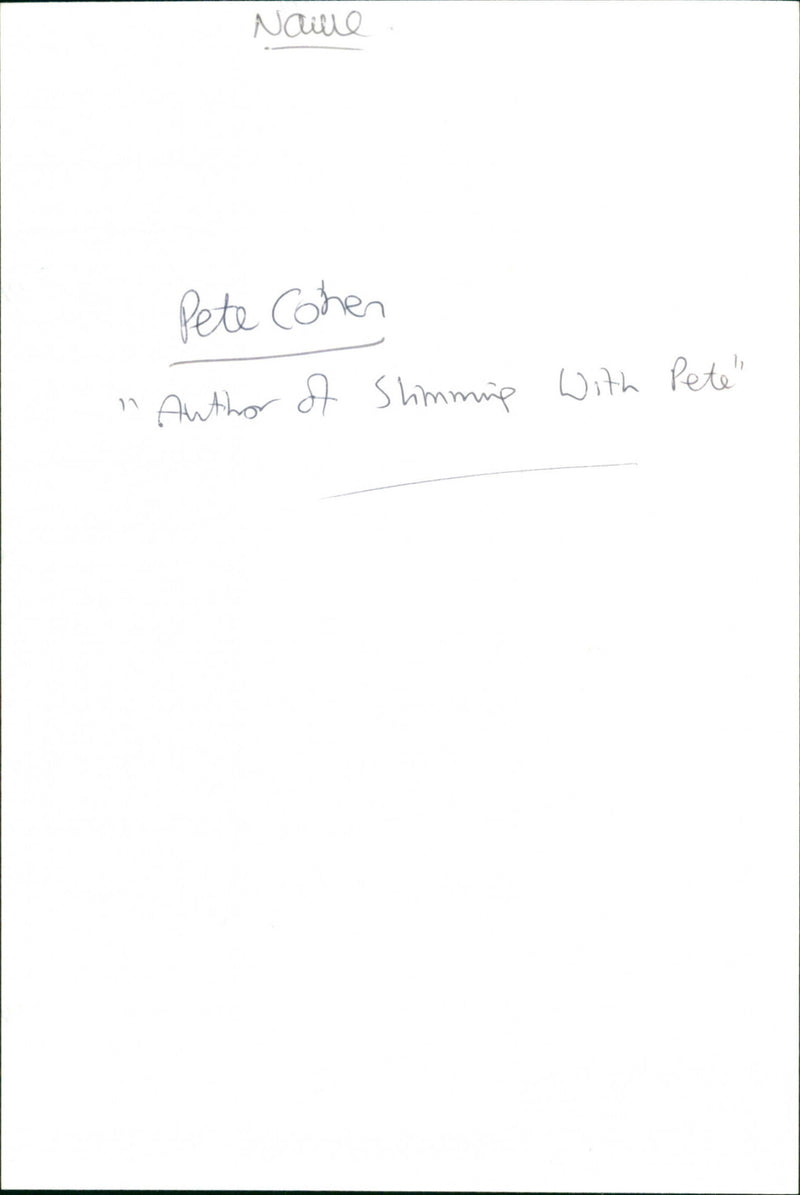 Name
Pete Cohen
"Author of Slimming With Pete"